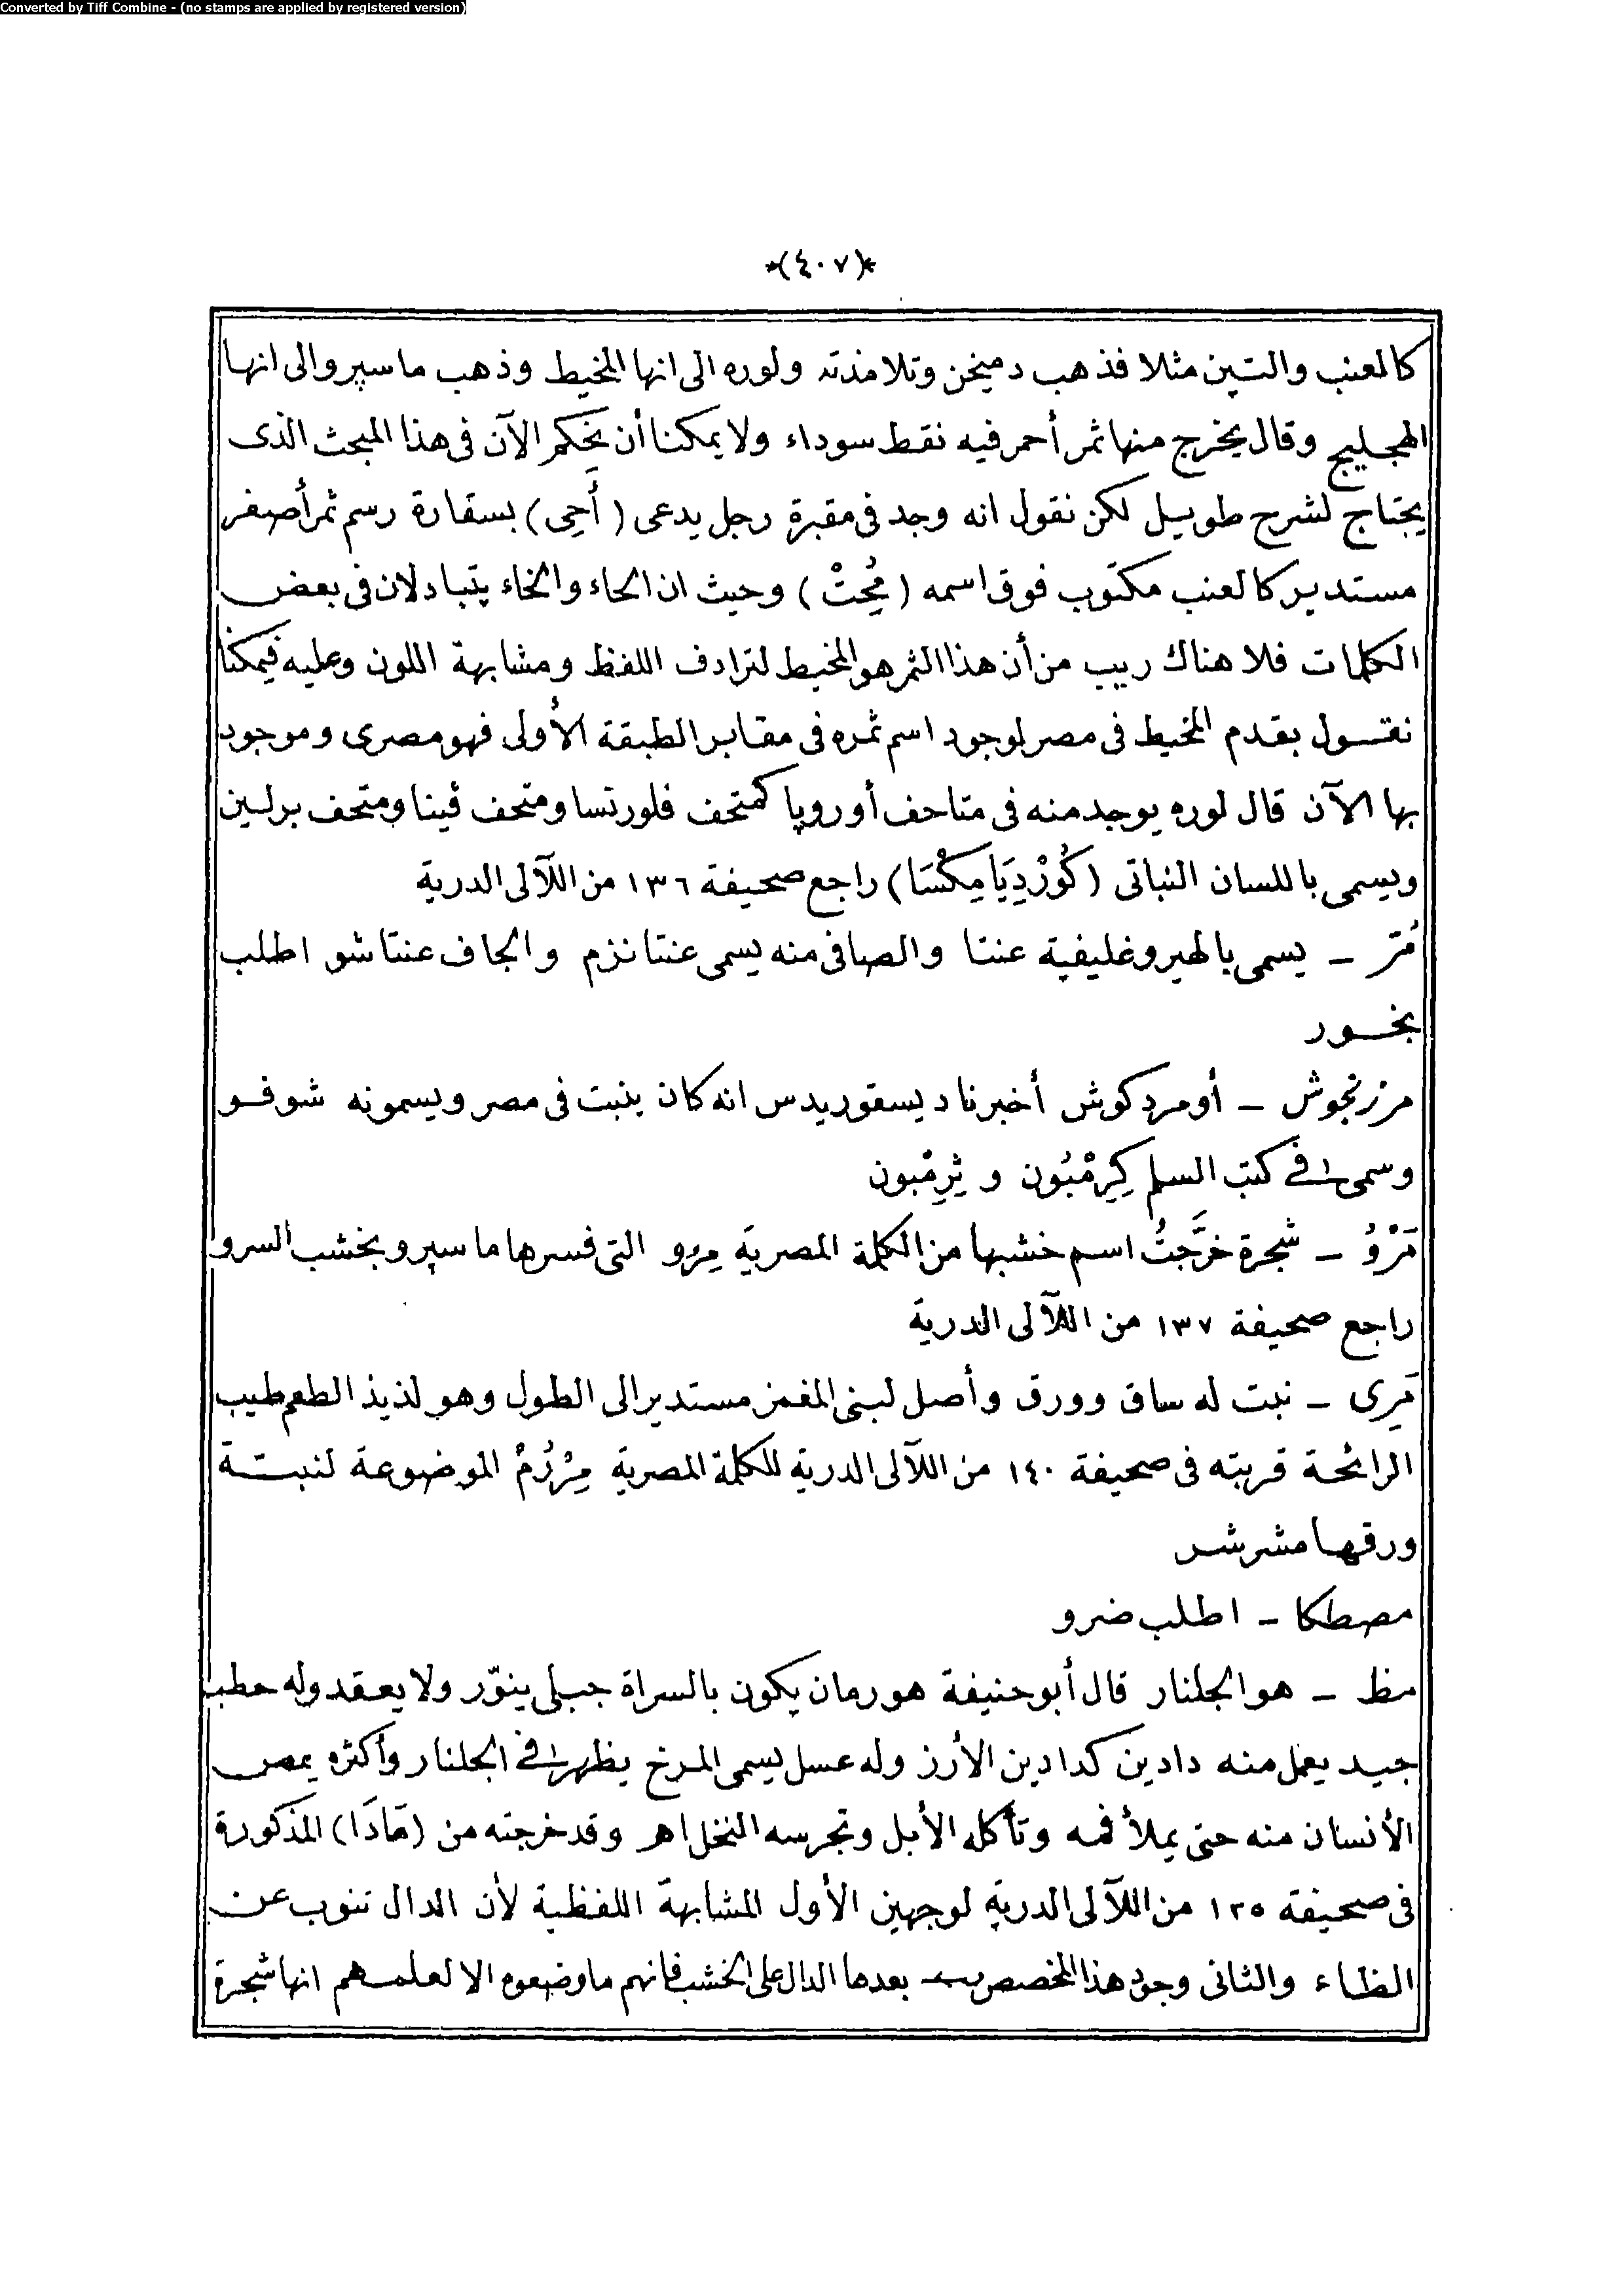 Converted by Tiff Combine - (no stamps are applied by registered version)
*(٤٠٧)*
كالعنب والتين مثلا فذهب دميخن وتلامذته ولوره الى انها المخيط وذهب ماسپرو الى انها
الهجليج وقال يخرج منها ثمر أحمر فيه نقط سوداء ولا يمكننا أن نحكم الآن فى هذا المبحث الذى
يحتاج لشرح طويل لكن نقول انه وجد فى مقبرة رجل يدعى (أَحِى) بسقارة رسم ثمر أصفر
مستدير كالعنب مكتوب فوق اسمه (مُحِتْ) وحيث ان الحاء والخاء يتبادلان فى بعض
الكلمات فلا هناك ريب من أن هذا الثمر هو المخيط لترادف اللفظ ومشابهة اللون وعليه فيمكنا
نقول بقدم المخيط فى مصر لوجود اسم ثمره فى مقابر الطبقة الأولى فهو مصرى وموجود
بها الآن قال لوره يوجد منه فى متاحف أوروپا كمتحف فلورنسا ومتحف ڤينا ومتحف برلين
ويسمى باللسان النباتى (كُوُرْدِيَا مِكْسَا) راجع صحيفة ١٣٦ من اللآلى الدرية
مُر ـ يسمى بالهيروغليفية عنتا والصافى منه يسمى عنتا نزم والجاف عنتا شو اطلب
بخور
مرزنجوش ـ أو مردكوش أخبرنا ديسقوريدس انه كان ينبت فى مصر ويسمونه شوفو
وسمى فى كتب السلم كِرِمْبُون و ثِرِمْبون
مَرْوُ ـ شجرة خرَّجتُ اسم خشبها من الكلمة المصرية مِرُو التى فسرها ماسپرو بخشب السرو
راجع صحيفة ١٣٧ من اللآلى الدرية
مَرِى ـ نبت له ساق وورق وأصل لبنى المغمز مستدير الى الطول وهو لذيذ الطعم طيب
الرائحة قربته فى صحيفة ١٤٠ من اللآلى الدرية للكلمة المصرية مِرُزُمْ الموضوعة لنبتة
ورقها مشرشر
مصطكا ـ اطلب ضرو
مظ ـ هو الجلنار قال أبو حنيفة هو رمان يكون بالسراة جبلى ينوّر ولا يعقد وله حطب
جيد يعمل منه دادين كدادين الأرز وله عسل يسمى المرخ يظهر فى الجلنار وأكثره يمص
الأنسان منه حتى يملأ فمه وتأكله الأبل وتجرسه النخل اهـ وقد خرجته من (مَادَا) المذكورة
فى صحيفة ١٢٥ من اللآلى الدرية لوجهين الأول المشابهة اللفظية لأن الدال تنوب عن
الظاء والثانى وجود هذا المخصص بعدها الدال على الخشب فانهم ما وضعوه الا لعلمهم انها شجرة